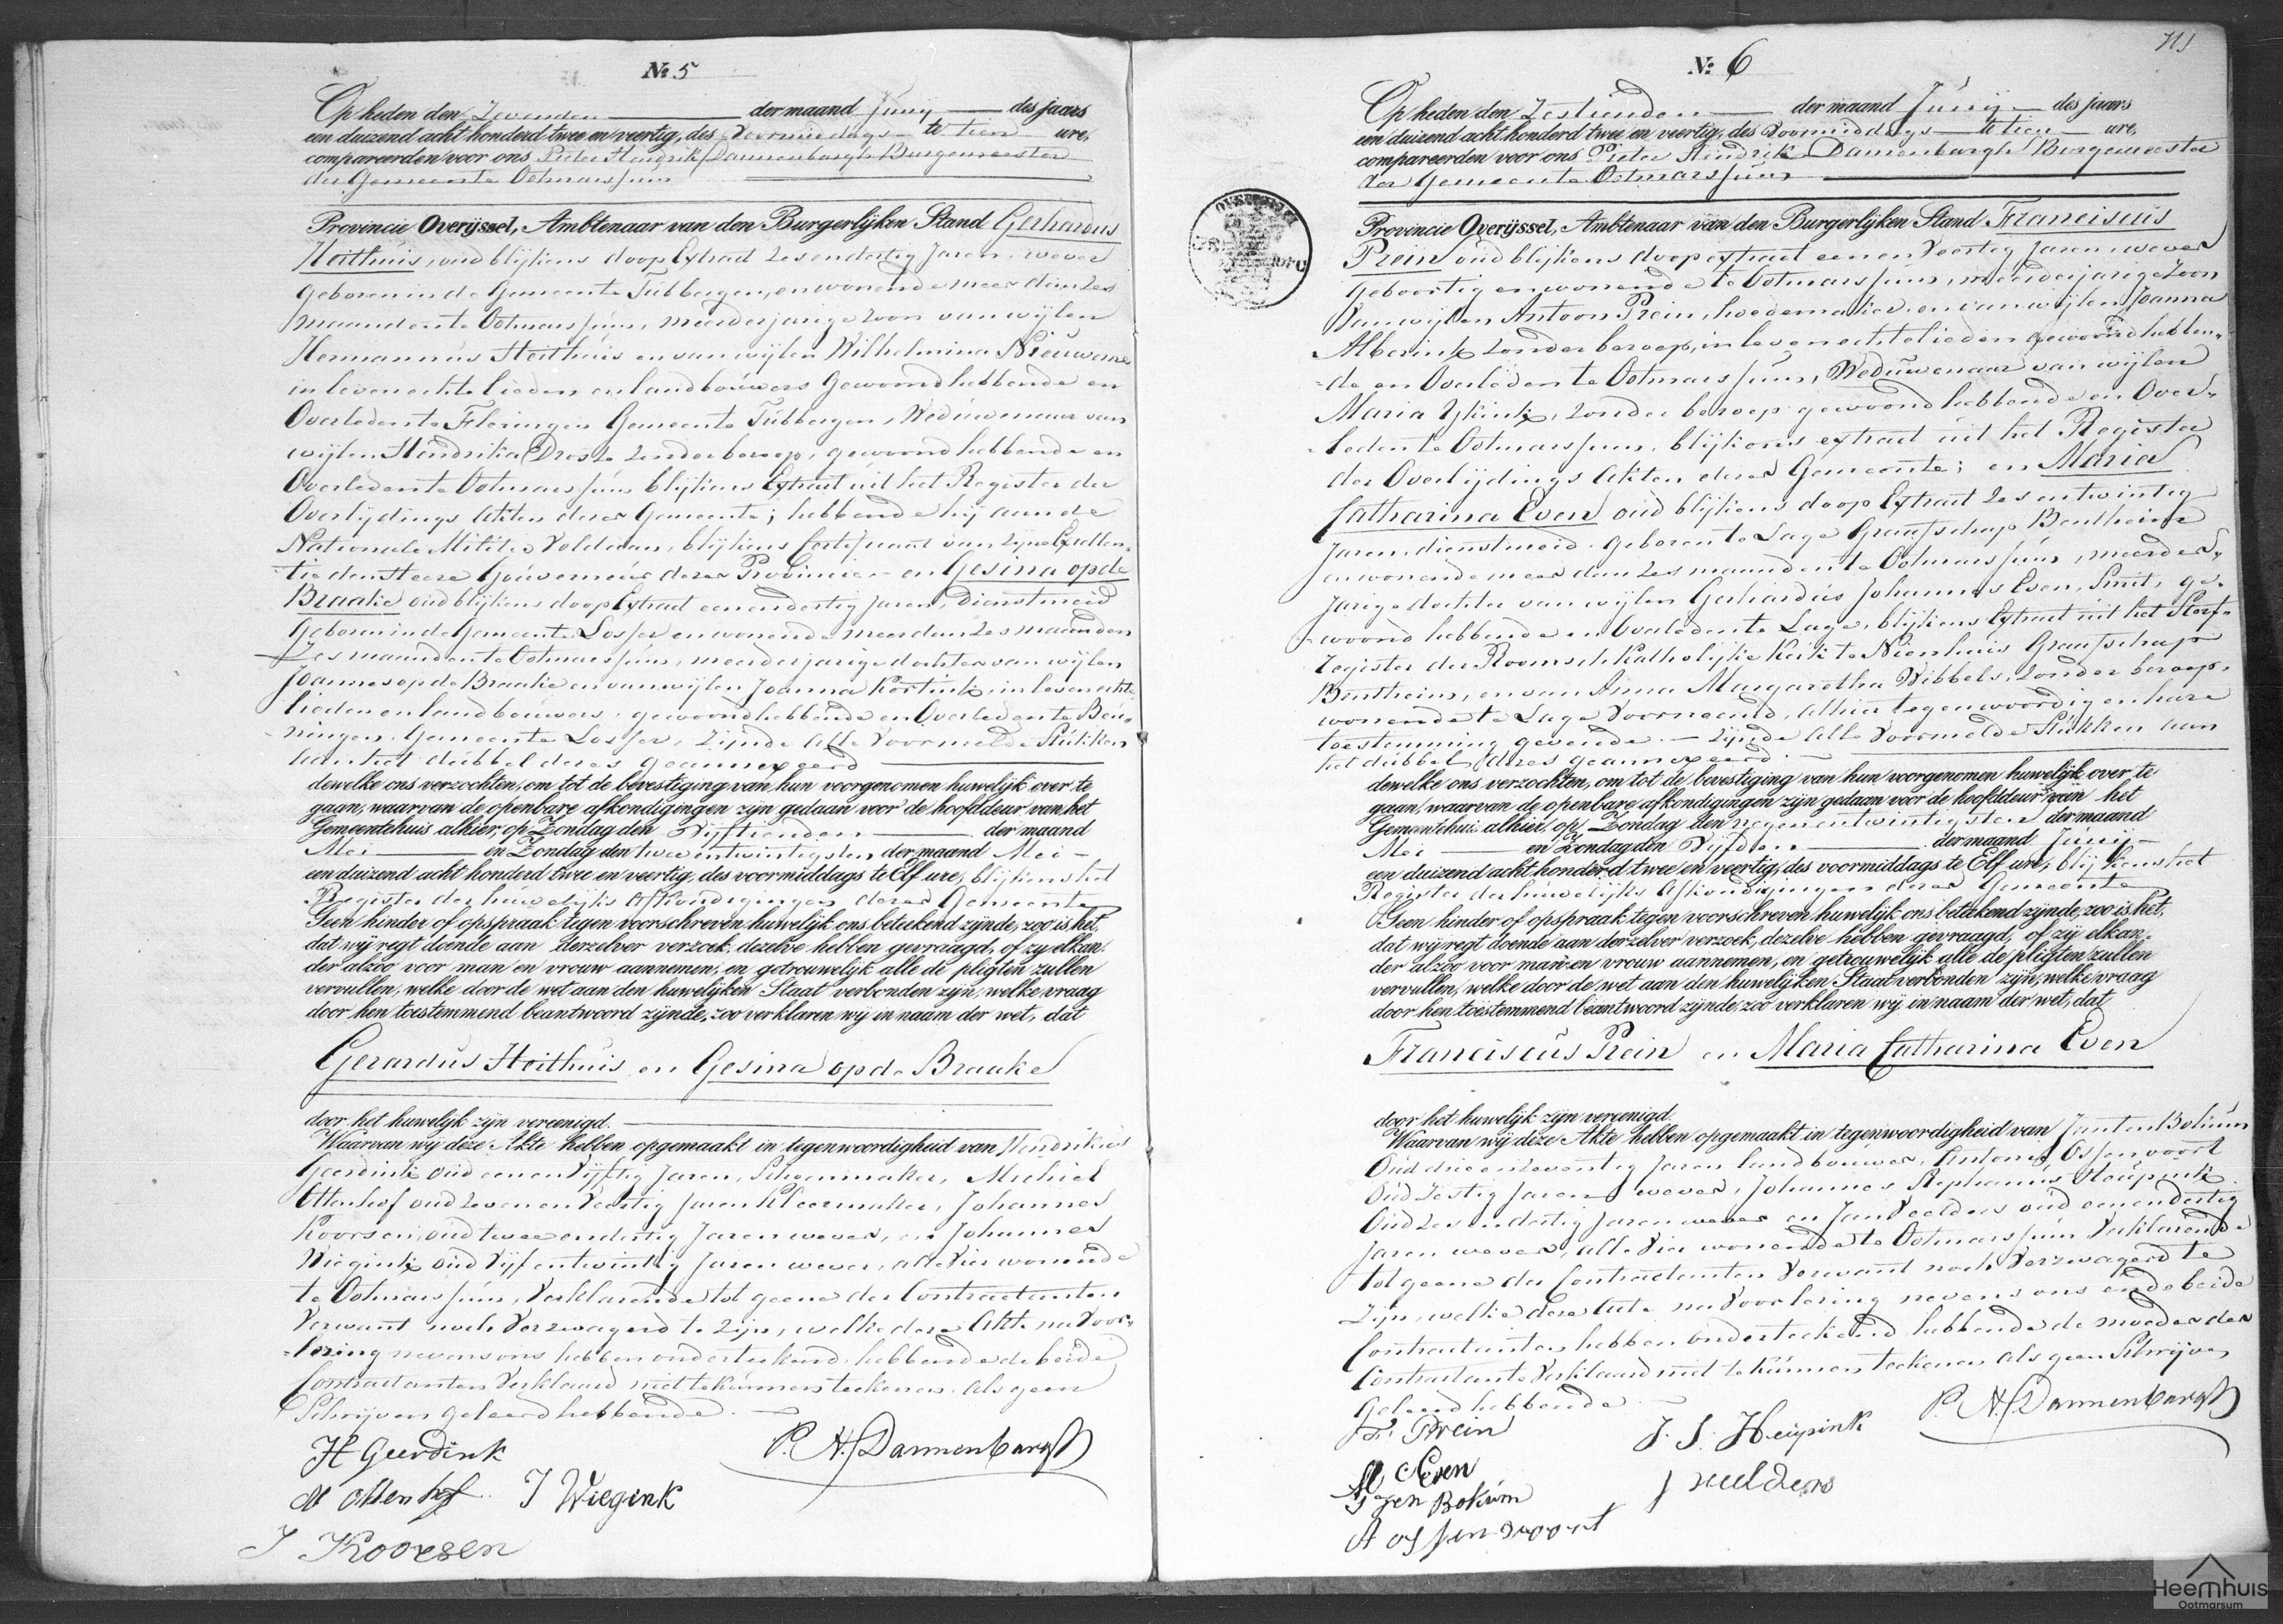 № 5
Op heden den Zevenden der maand Junij des jaars
een duizend acht honderd twee en veertig, des Voormiddags te tien ure,
compareerden voor ons Pieter Hendrik Dannenbargh Burgemeester
der Gemeente Ootmarssum
Provincie Overijssel, Ambtenaar van den Burgerlijken Stand Gerhardus
Heithuis, oud blijkens doop Extract zes en dertig Jaren, wever
geboren in de Gemeente Tubbergen, en wonende meer dan zes
maanden te Ootmarssum, meerderjarige zoon van wijlen
Hermannus Heithuis en van wijlen Wilhelmina Nieuwe
in leven echtelieden en landbouwers gewoond hebbende en
Overleden te Fleringen Gemeente Tubbergen, Weduwenaar van
wijlen Hendrika Droste zonder beroep, gewoond hebbende en
Overleden te Ootmarssum blijkens Extract uit het Register der
Overlijdings Akten dezer Gemeente; hebbende hij aan de
Nationale Militie Voldaan, blijkens Certificaat van Zijne Excellen-
tie den Heere Gouverneur dezer Provincie - en Gesina op de
Braake oud blijkens doop Extract een en dertig Jaren, Dienstmeid
geboren in de Gemeente Losser en wonende meer dan zes maanden
Zes maanden te Ootmarssum, meerderjarige dochter van wijlen
Joannes op de Braake en van wijlen Joanna Kortink, in leven echte
lieden en landbouwers, gewoond hebbende en Overleden te Beu-
ningen, Gemeente Losser, Zijnde alle Voormelde Stukken
aan het dubbel dezes geannexeerd
dewelke ons verzochten, om tot de bevestiging van hun voorgenomen huwelijk over te
gaan, waarvan de openbare afkondigingen zijn gedaan voor de hoofddeur van het
Gemeentehuis alhier, op Zondag den Vijftienden der maand
Mei en Zondag den twee en twintigsten der maand Mei
een duizend acht honderd twee en veertig, des voormiddags te Elf ure, blijkens het
Register der huwelijks Afkondigingen dezer Gemeente
Geen hinder of opspraak tegen voorschreven huwelijk ons betekend zijnde, zoo is het,
dat wij regt doende aan derzelver verzoek, dezelve hebben gevraagd, of zij elkan-
der alzoo voor man en vrouw aannemen, en getrouwelijk alle de pligten zullen
vervullen, welke door de wet aan den huwelijken Staat verbonden zijn; welke vraag
door hen toestemmend beantwoord zijnde, zoo verklaren wij in naam der wet, dat
Gerardus Heithuis en Gesina op de Braake
door het huwelijk zijn vereenigd.
Waarvan wij deze Akte hebben opgemaakt in tegenwoordigheid van Hendrikus
Geerdink oud een en Vijftig Jaren, Schoenmaker, Michiel
Ottenhof oud zeven en Veertig Jaren Kleermaker, Johannes
Koorsen, oud twee en dertig Jaren wever, en Johannes
Wiegink oud Vijf en twintig Jaren wever, alle Vier wonende
te Ootmarssum, Verklarende tot geene der Contractanten
Verwant noch Verzwagerd te zijn, welke deze Akte na Voor-
lezing nevens ons hebben onderteekend, hebbende de beide
Contractanten Verklaard niet te kunnen teekenen als geen
Schrijven geleerd hebbende.
H Geerdink
P. H. Dannenbargh
M Ottenhof
J Wiegink
J Koorsen
№ 6
Op heden den Zestienden der maand Junij des jaars
een duizend acht honderd twee en veertig, des Voormiddags te tien ure,
compareerden voor ons Pieter Hendrik Dannenbargh Burgemeester
der Gemeente Ootmarssum
Provincie Overijssel, Ambtenaar van den Burgerlijken Stand Franciscus
Prein oud blijkens doop extract een en Veertig Jaren, wever
Geboortig en wonende te Ootmarssum, meerderjarige Zoon
Van wijlen Antoon Prein, hoedemaker, en van wijlen Joanna
Alberink zonder beroep, in leven echtelieden gewoond hebben-
de en Overleden te Ootmarssum, Weduwenaar van wijlen
Maria Ykink, zonder beroep gewoond hebbende en Over-
leden te Ootmarssum, blijkens extract uit het Register
der Overlijdings Akten dezer Gemeente; en Maria
Catharina Even oud blijkens doop Extract zes en twintig
Jaren, dienstmeid, geboren te Lage Graafschap Bentheim
en wonende meer dan zes maanden te Ootmarssum, meerder-
Jarige dochter van wijlen Gerhardus Johannes Even, Smit, ge-
woond hebbende en Overleden te Lage, blijkens Extract uit het Sterf-
register der Roomsch Katholijke Kerk te Nienhuis Graafschap
Bentheim, en van Anna Margaretha Wibbels, zonder beroep,
wonende te Lage Voornoemd, alhier tegenwoordig en hare
toestemming gevende. - Zijnde alle Voormelde Stukken aan
het dubbel dezes geannexeerd.
dewelke ons verzochten, om tot de bevestiging van hun voorgenomen huwelijk over te
gaan, waarvan de openbare afkondigingen zijn gedaan voor de hoofddeur van het
Gemeentehuis alhier, op Zondag den negen en twintigsten der maand
Mei en Zondag den Vijfden der maand Junij
een duizend acht honderd twee en veertig, des voormiddags te Elf ure, blijkens het
Register der huwelijks Afkondigingen dezer Gemeente
Geen hinder of opspraak tegen voorschreven huwelijk ons betekend zijnde, zoo is het,
dat wij regt doende aan derzelver verzoek, dezelve hebben gevraagd, of zij elkan-
der alzoo voor man en vrouw aannemen, en getrouwelijk alle de pligten zullen
vervullen, welke door de wet aan den huwelijken Staat verbonden zijn, welke vraag
door hen toestemmend beantwoord zijnde, zoo verklaren wij in naam der wet, dat
Franciscus Prein en Maria Catharina Even
door het huwelijk zijn vereenigd.
Waarvan wij deze Akte hebben opgemaakt in tegenwoordigheid van Jan ten Bokum
Oud drie en zeventig Jaren landbouwer, Antony Ossenvoort
Oud Zestig Jaren wever, Johannes Stephanus Heupink
Oud Zes en dertig Jaren wever en Jan Veelders oud een en dertig
Jaren wever, alle Vier wonende te Ootmarssum Verklarende
tot geene der Contractanten Verwant noch Verzwagerd te
Zijn, welke deze Acte na Voorlezing nevens ons en de beide
Contractanten hebben onderteekend, hebbende de moeder der
Contractante Verklaard niet te kunnen teekenen als geen Schrijven
Geleerd hebbende
F. Prein
J. S. Heupink
P. H. Dannenbargh
M C Even
J ten Bokum
J veelders
A ossenvoort
Heemhuis
Ootmarsum